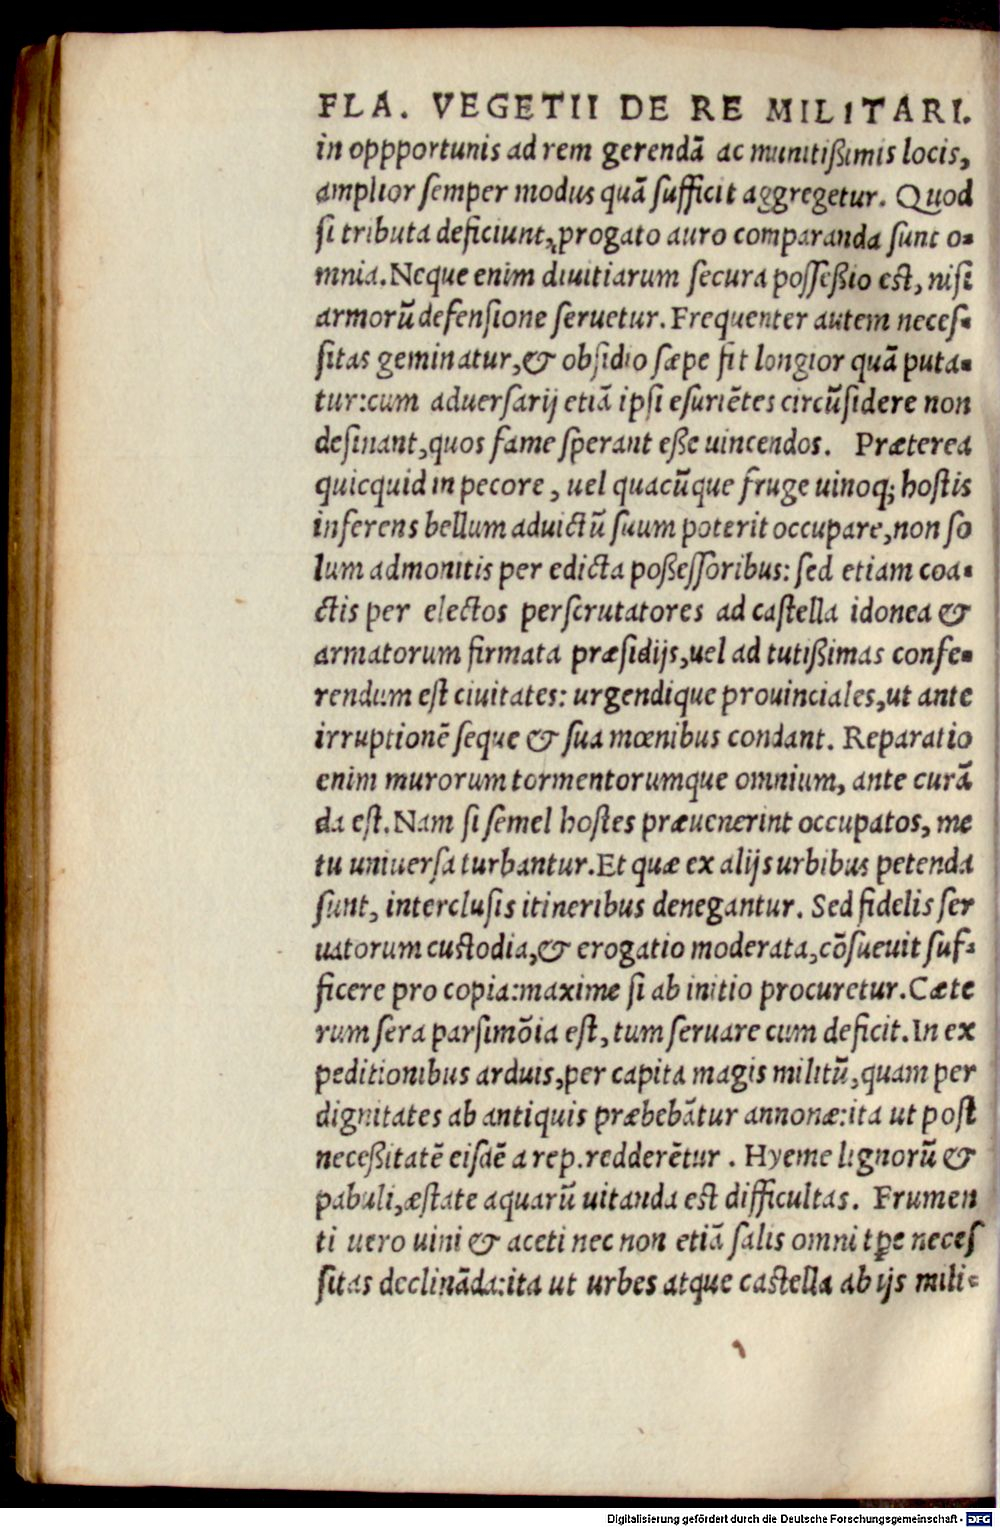 FLA. VEGETII DE RE MILITARI.
in oppportunis ad rem gerendā ac munitißimis locis,
amplior semper modus quā sufficit aggregetur. Quod
si tributa deficiunt, progato auro comparanda sunt o-
mnia. Neque enim diuitiarum secura possеßio est, nisi
armorū defensione seruetur. Frequenter autem neces-
sitas geminatur, & obsidio sæpe fit longior quā puta-
tur: cum aduersarij etiā ipsi esuriētes circūsidere non
desinant, quos fame sperant eße uincendos. Præterea
quicquid in pecore, uel quacūque fruge uinoq; hostis
inferens bellum aduictū suum poterit occupare, non so
lum admonitis per edicta poßessoribus: sed etiam coa-
ctis per electos perscrutatores ad castella idonea &
armatorum firmata præsidijs, uel ad tutißimas confe-
rendum est ciuitates: urgendique prouinciales, ut ante
irruptionē seque & sua mœnibus condant. Reparatio
enim murorum tormentorumque omnium, ante curā
da est. Nam si semel hostes præuenerint occupatos, me
tu uniuersa turbantur. Et quæ ex alijs urbibus petenda
sunt, interclusis itineribus denegantur. Sed fidelis ser
uatorum custodia, & erogatio moderata, cōsueuit suf-
ficere pro copia: maxime si ab initio procuretur. Cæte
rum sera parsimōia est, tum seruare cum deficit. In ex
peditionibus arduis, per capita magis militū, quam per
dignitates ab antiquis præbebātur annonæ: ita ut post
neceßitatē eisdē a rep. redderētur. Hyeme lignorū &
pabuli, æstate aquarū uitanda est difficultas. Frumen
ti uero uini & aceti nec non etiā salis omni tꝑe neces
sitas declināda: ita ut urbes atque castella ab ijs mili-
Digitalisierung gefördert durch die Deutsche Forschungsgemeinschaft - DFG